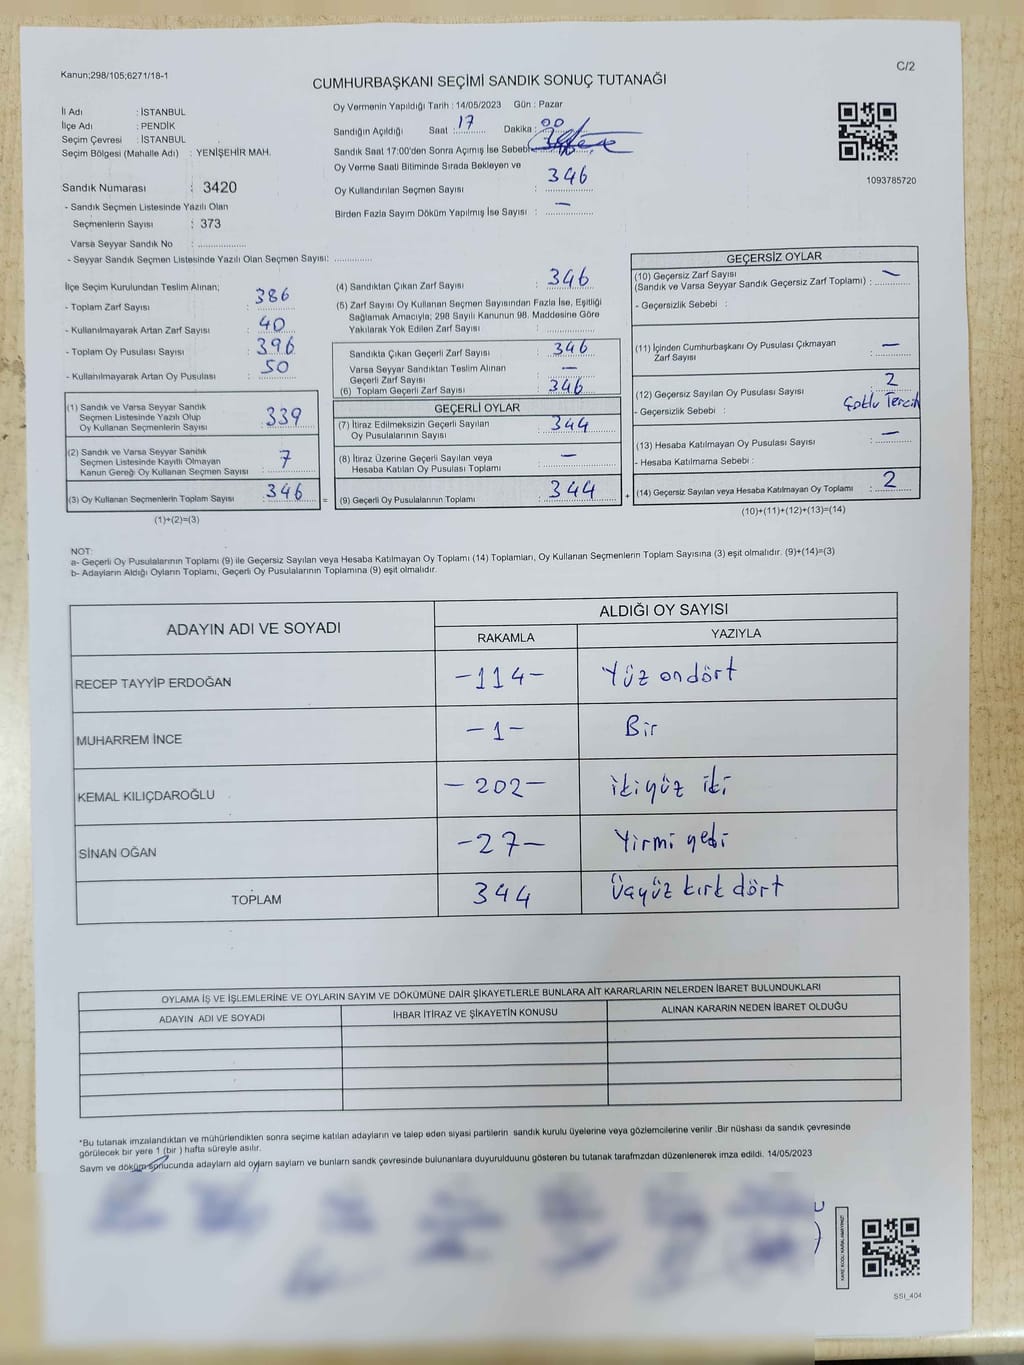 Kanun;298/105;6271/18-1
C/2
CUMHURBAŞKANI SEÇİMİ SANDIK SONUÇ TUTANAĞI
İl Adı : İSTANBUL
İlçe Adı : PENDİK
Seçim Çevresi : İSTANBUL
Seçim Bölgesi (Mahalle Adı) : YENİŞEHİR MAH.
Sandık Numarası : 3420
- Sandık Seçmen Listesinde Yazılı Olan
Seçmenlerin Sayısı : 373
Varsa Seyyar Sandık No : ..................
- Seyyar Sandık Seçmen Listesinde Yazılı Olan Seçmen Sayısı: .............
Oy Vermenin Yapıldığı Tarih : 14/05/2023 Gün : Pazar
Sandığın Açıldığı Saat : 17 Dakika : 00
Sandık Saat 17:00'den Sonra Açımış İse Sebebi
Oy Verme Saati Bitiminde Sırada Bekleyen ve
Oy Kullandırılan Seçmen Sayısı : 346
Birden Fazla Sayım Döküm Yapılmış İse Sayısı : —
1093785720
İlçe Seçim Kurulundan Teslim Alınan;
- Toplam Zarf Sayısı : 386
- Kullanılmayarak Artan Zarf Sayısı : 40
- Toplam Oy Pusulası Sayısı : 396
- Kullanılmayarak Artan Oy Pusulası : 50
(1) Sandık ve Varsa Seyyar Sandık
Seçmen Listesinde Yazılı Olup
Oy Kullanan Seçmenlerin Sayısı : 339
(2) Sandık ve Varsa Seyyar Sandık
Seçmen Listesinde Kayıtlı Olmayan
Kanun Gereği Oy Kullanan Seçmen Sayısı : 7
(3) Oy Kullanan Seçmenlerin Toplam Sayısı : 346 =
(1)+(2)=(3)
(4) Sandıktan Çıkan Zarf Sayısı : 346
(5) Zarf Sayısı Oy Kullanan Seçmen Sayısından Fazla İse, Eşitliği
Sağlamak Amacıyla; 298 Sayılı Kanunun 98. Maddesine Göre
Yakılarak Yok Edilen Zarf Sayısı : .............
Sandıkta Çıkan Geçerli Zarf Sayısı : 346
Varsa Seyyar Sandıktan Teslim Alınan
Geçerli Zarf Sayısı : —
(6) Toplam Geçerli Zarf Sayısı : 346
GEÇERLİ OYLAR
(7) İtiraz Edilmeksizin Geçerli Sayılan
Oy Pusulalarının Sayısı : 344
(8) İtiraz Üzerine Geçerli Sayılan veya
Hesaba Katılan Oy Pusulası Toplamı : —
(9) Geçerli Oy Pusulalarının Toplamı : 344 +
GEÇERSİZ OYLAR
(10) Geçersiz Zarf Sayısı
(Sandık ve Varsa Seyyar Sandık Geçersiz Zarf Toplamı) : —
- Geçersizlik Sebebi :
(11) İçinden Cumhurbaşkanı Oy Pusulası Çıkmayan
Zarf Sayısı : —
(12) Geçersiz Sayılan Oy Pusulası Sayısı : 2
- Geçersizlik Sebebi : Çoklu Tercih
(13) Hesaba Katılmayan Oy Pusulası Sayısı : —
- Hesaba Katılmama Sebebi :
(14) Geçersiz Sayılan veya Hesaba Katılmayan Oy Toplamı : 2
(10)+(11)+(12)+(13)=(14)
NOT:
a- Geçerli Oy Pusulalarının Toplamı (9) ile Geçersiz Sayılan veya Hesaba Katılmayan Oy Toplamı (14) Toplamları, Oy Kullanan Seçmenlerin Toplam Sayısına (3) eşit olmalıdır. (9)+(14)=(3)
b- Adayların Aldığı Oyların Toplamı, Geçerli Oy Pusulalarının Toplamına (9) eşit olmalıdır.
ADAYIN ADI VE SOYADI
ALDIĞI OY SAYISI
RAKAMLA YAZIYLA
RECEP TAYYİP ERDOĞAN -114- Yüz ondört
MUHARREM İNCE -1- Bir
KEMAL KILIÇDAROĞLU -202- ikiyüz iki
SİNAN OĞAN -27- Yirmi yedi
TOPLAM 344 Üçyüz kırk dört
OYLAMA İŞ VE İŞLEMLERİNE VE OYLARIN SAYIM VE DÖKÜMÜNE DAİR ŞİKAYETLERLE BUNLARA AİT KARARLARIN NELERDEN İBARET BULUNDUKLARI
ADAYIN ADI VE SOYADI İHBAR İTİRAZ VE ŞİKAYETİN KONUSU ALINAN KARARIN NEDEN İBARET OLDUĞU
*Bu tutanak imzalandıktan ve mühürlendikten sonra seçime katılan adayların ve talep eden siyasi partilerin sandık kurulu üyelerine veya gözlemcilerine verilir .Bir nüshası da sandık çevresinde
görülecek bir yere 1 (bir ) hafta süreyle asılır.
Sayım ve döküm sonucunda adayların ald oyların sayların ve bunların sandk çevresinde bulunanlara duyurulduunu gösteren bu tutanak tarafmzdan düzenlenerek imza edildi. 14/05/2023
SSI_404